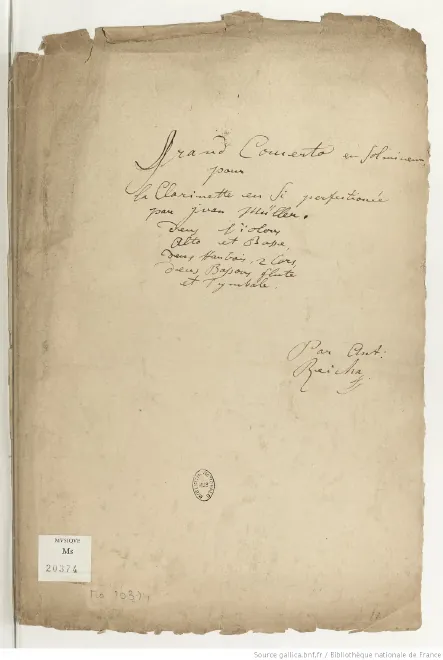 Grand Concerto en Sol mineur
pour
la Clarinette en Si perfectionée
par jvan Müller.
deux Violons
Alto et Basse
deux Hautbois, 2 Cors
deux Bassons flute
et Tymbale.
Par Ant:
Reicha
MUSIQUE
Ms
20374
Source gallica.bnf.fr / Bibliothèque nationale de France